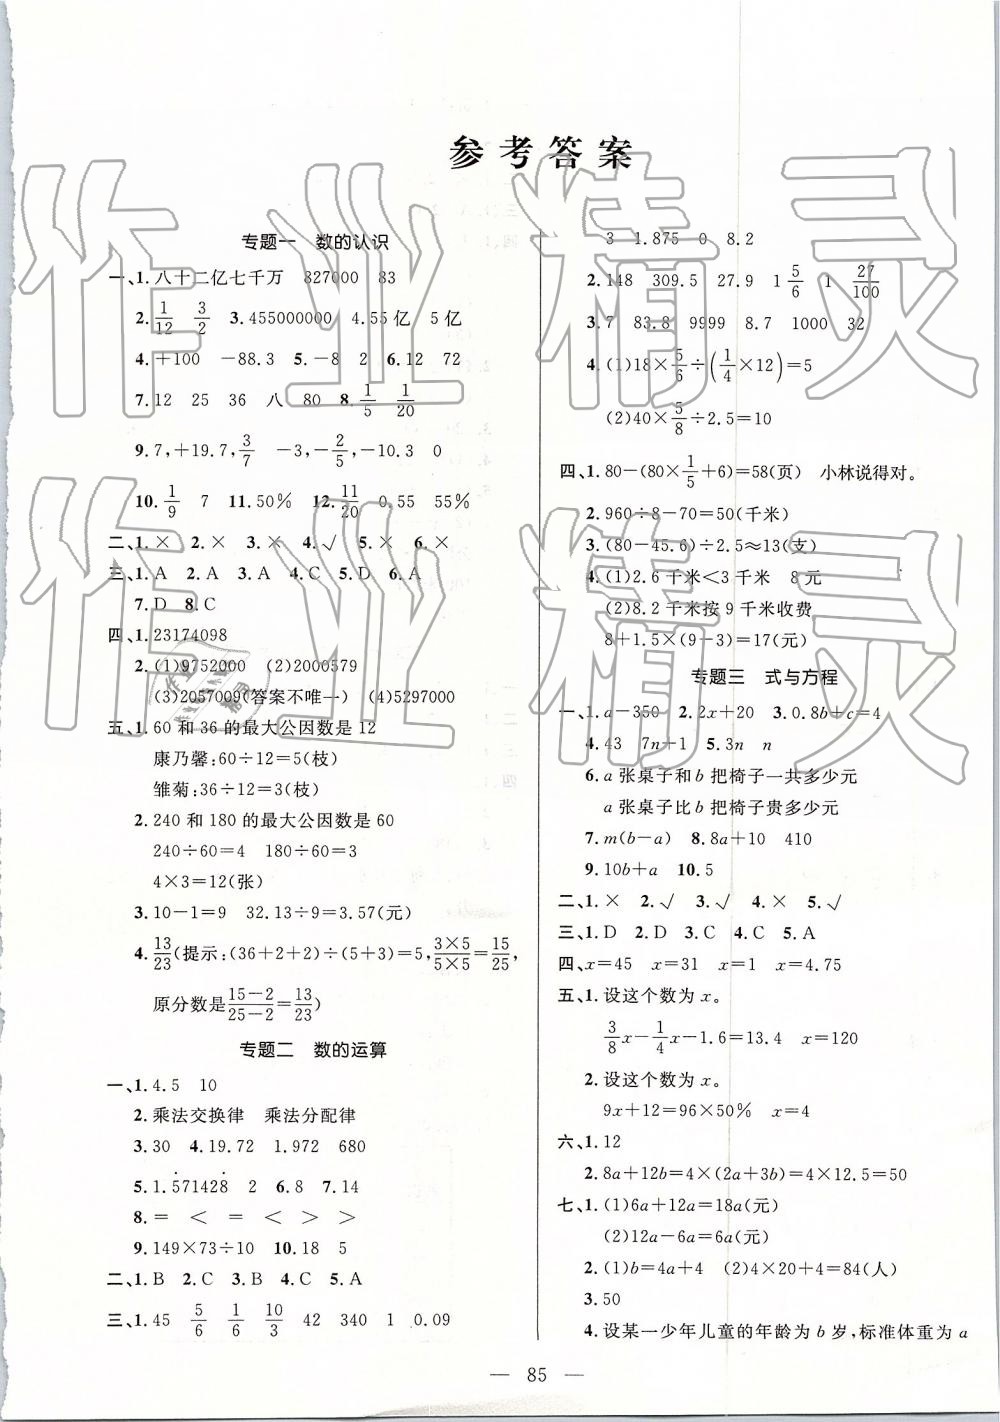 参考答案
专题一 数的认识
一、1.八十二亿七千万 827000 83
2.1/12 3/2 3.455000000 4.55亿 5亿
4.+100 -88.3 5.-8 2 6.12 72
7.12 25 36 八 80 8.1/5 1/20
9.7,+19.7,3/7 -3,-2/5,-10.3 0
10.1/9 7 11.50% 12.11/20 0.55 55%
二、1.× 2.× 3.× 4.√ 5.× 6.×
三、1.A 2.A 3.A 4.C 5.D 6.A
7.D 8.C
四、1.23174098
2.(1)9752000 (2)2000579
(3)2057009(答案不唯一) (4)5297000
五、1.60和36的最大公因数是12
康乃馨:60÷12=5(枝)
雏菊:36÷12=3(枝)
2.240和180的最大公因数是60
240÷60=4 180÷60=3
4×3=12(张)
3.10-1=9 32.13÷9=3.57(元)
4.13/23(提示:(36+2+2)÷(5+3)=5,3×5/5×5=15/25,
原分数是15-2/25-2=13/23)
专题二 数的运算
一、1.4.5 10
2.乘法交换律 乘法分配律
3.30 4.19.72 1.972 680
5.1.5̇71428̇ 2 6.8 7.14
8.= < = < > >
9.149×73÷10 10.18 5
二、1.B 2.C 3.B 4.C 5.A
三、1.45 5/6 1/6 10/3 42 340 1 0.09
3 1.875 0 8.2
2.148 309.5 27.9 1 5/6 1 27/100
3.7 83.8 9999 8.7 1000 32
4.(1)18×5/6÷(1/4×12)=5
(2)40×5/8÷2.5=10
四、1.80-(80×1/5+6)=58(页) 小林说得对。
2.960÷8-70=50(千米)
3.(80-45.6)÷2.5≈13(支)
4.(1)2.6千米<3千米 8元
(2)8.2千米按9千米收费
8+1.5×(9-3)=17(元)
专题三 式与方程
一、1.a-350 2.2x+20 3.0.8b+c=4
4.43 7n+1 5.3n n
6.a张桌子和b把椅子一共多少元
a张桌子比b把椅子贵多少元
7.m(b-a) 8.8a+10 410
9.10b+a 10.5
二、1.× 2.√ 3.√ 4.× 5.√
三、1.D 2.D 3.C 4.C 5.A
四、x=45 x=31 x=1 x=4.75
五、1.设这个数为x。
3/8x-1/4x-1.6=13.4 x=120
2.设这个数为x。
9x+12=96×50% x=4
六、1.12
2.8a+12b=4×(2a+3b)=4×12.5=50
七、1.(1)6a+12a=18a(元)
(2)12a-6a=6a(元)
2.(1)b=4a+4 (2)4×20+4=84(人)
3.50
4.设某一少年儿童的年龄为b岁,标准体重为a
— 85 —
作业精灵
作业精灵